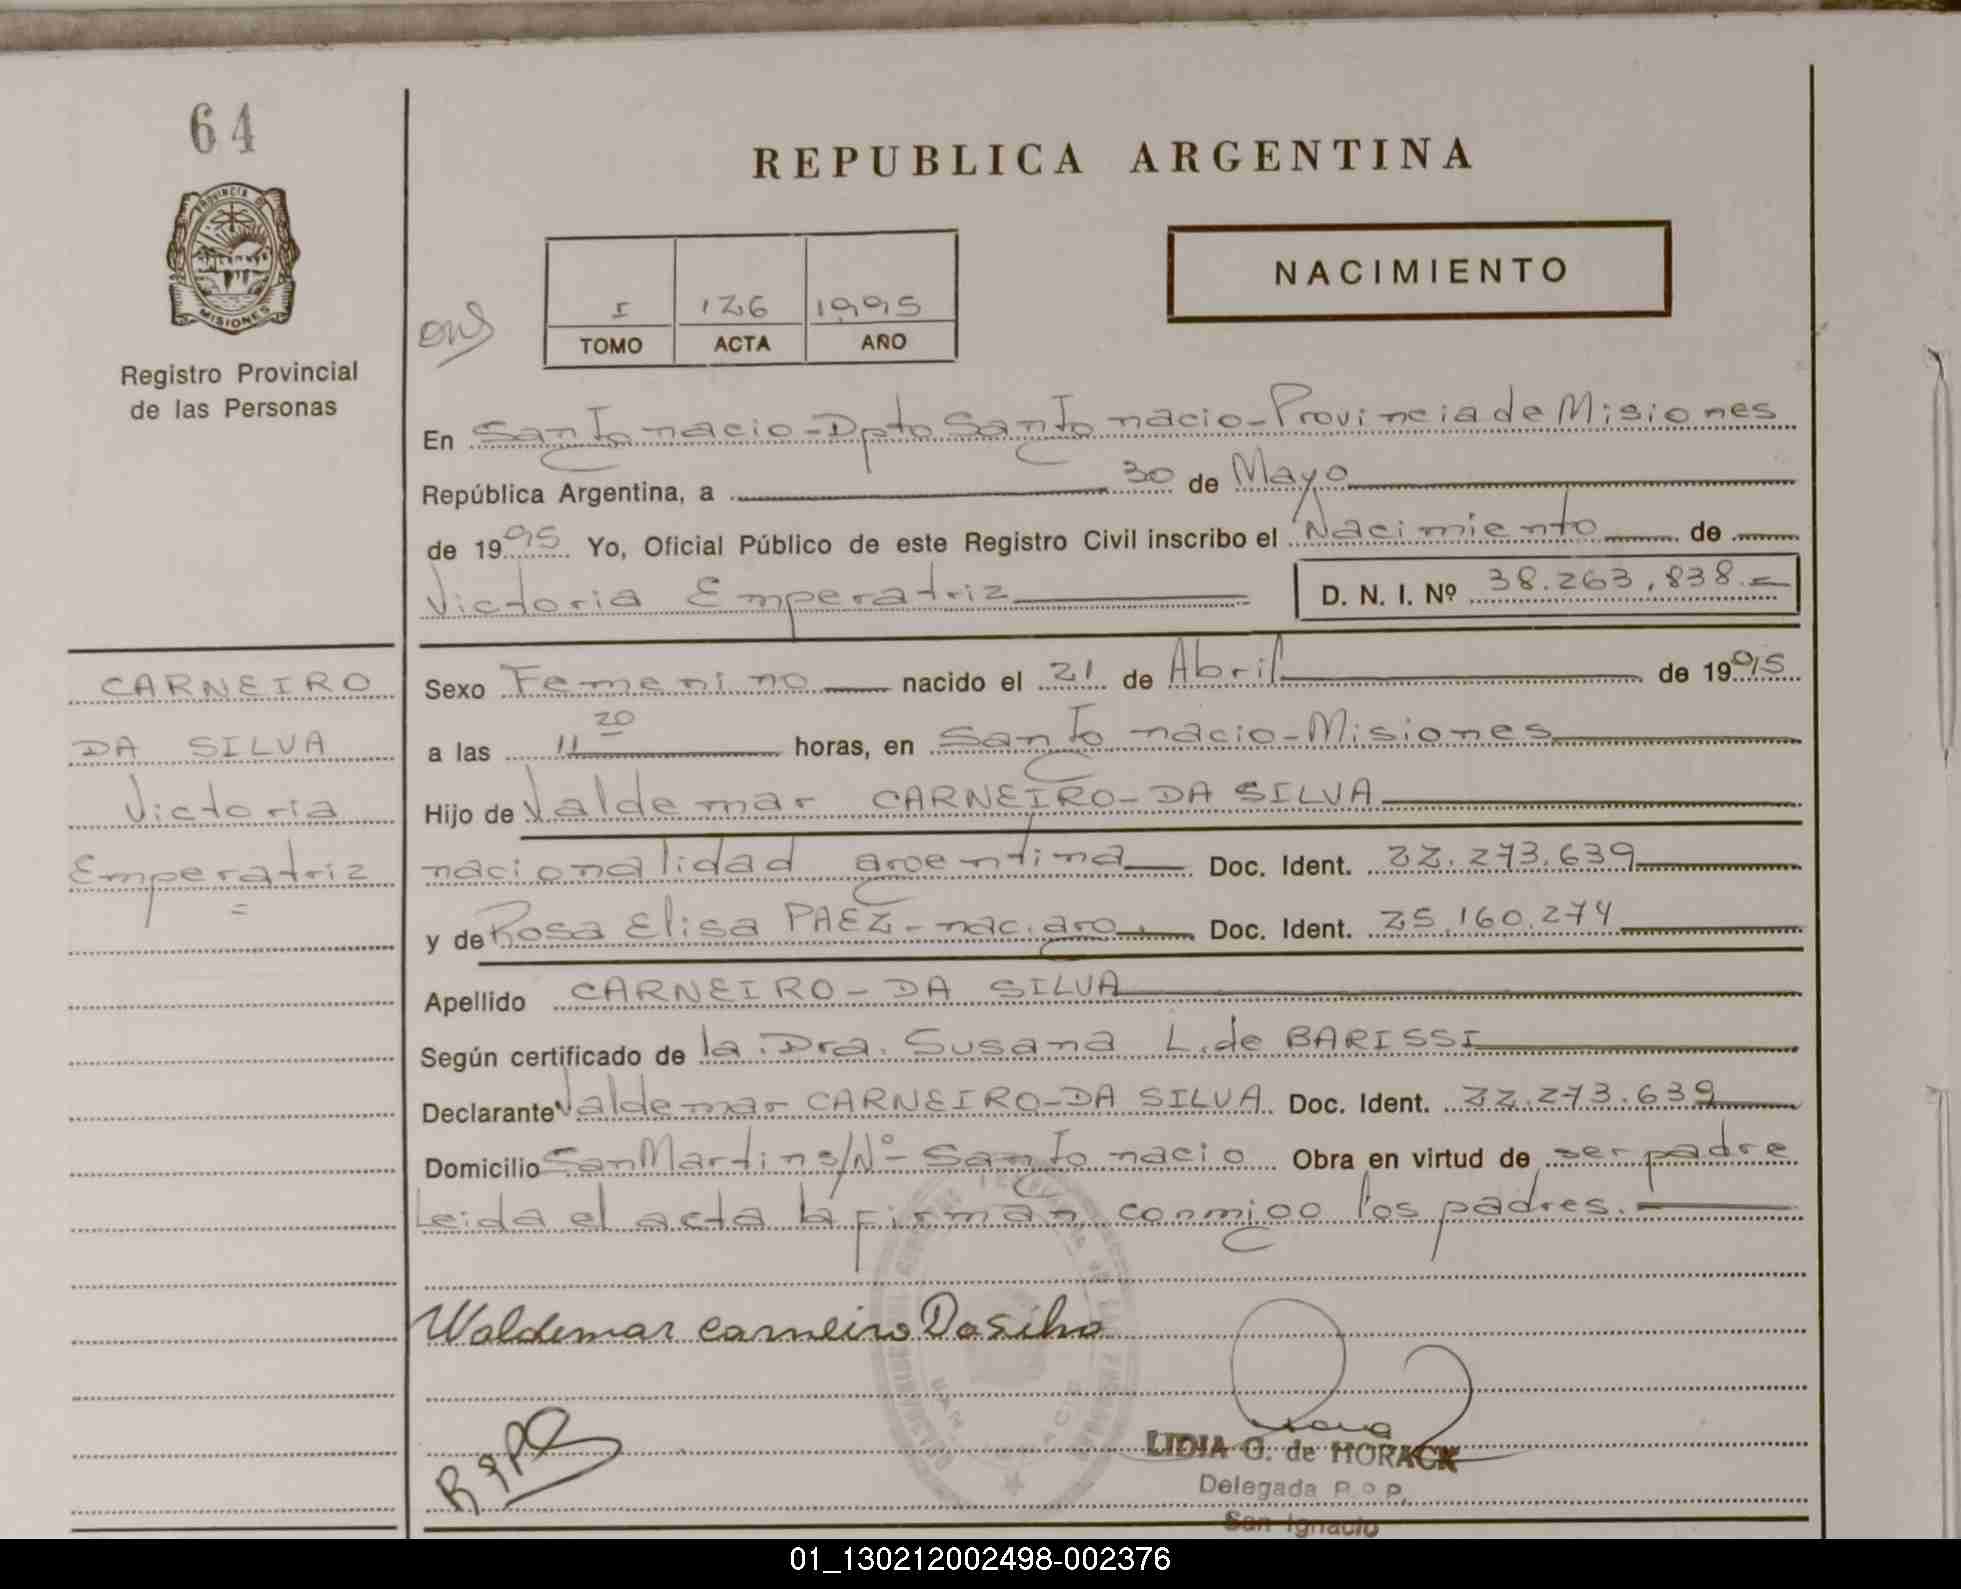 64
PROVINCIA DE
MISIONES
Registro Provincial
de las Personas
REPUBLICA ARGENTINA
I 126 1995
TOMO ACTA AÑO
NACIMIENTO
En San Ignacio - Dpto San Ignacio - Provincia de Misiones
República Argentina, a 30 de Mayo
de 1995 Yo, Oficial Público de este Registro Civil inscribo el Nacimiento de
Victoria Emperatriz D. N. I. Nº 38.263.838.-
CARNEIRO
DA SILVA
Victoria
Emperatriz
Sexo Femenino nacido el 21 de Abril de 1995
a las 11 20 horas, en San Ignacio - Misiones
Hijo de Valdemar CARNEIRO - DA SILVA
nacionalidad argentina Doc. Ident. 22.273.639
y de Rosa Elisa PAEZ - nac. arg. Doc. Ident. 25.160.274
Apellido CARNEIRO - DA SILVA
Según certificado de la Dra. Susana L. de BARISSI
Declarante Valdemar CARNEIRO - DA SILVA Doc. Ident. 22.273.639
Domicilio San Martin s/Nº - San Ignacio Obra en virtud de ser padre
Leida el acta la firman conmigo los padres.
Waldemar carneiro Da Silva
LIDIA G. de HORACK
Delegada R.P.P.
San Ignacio
01_130212002498-002376